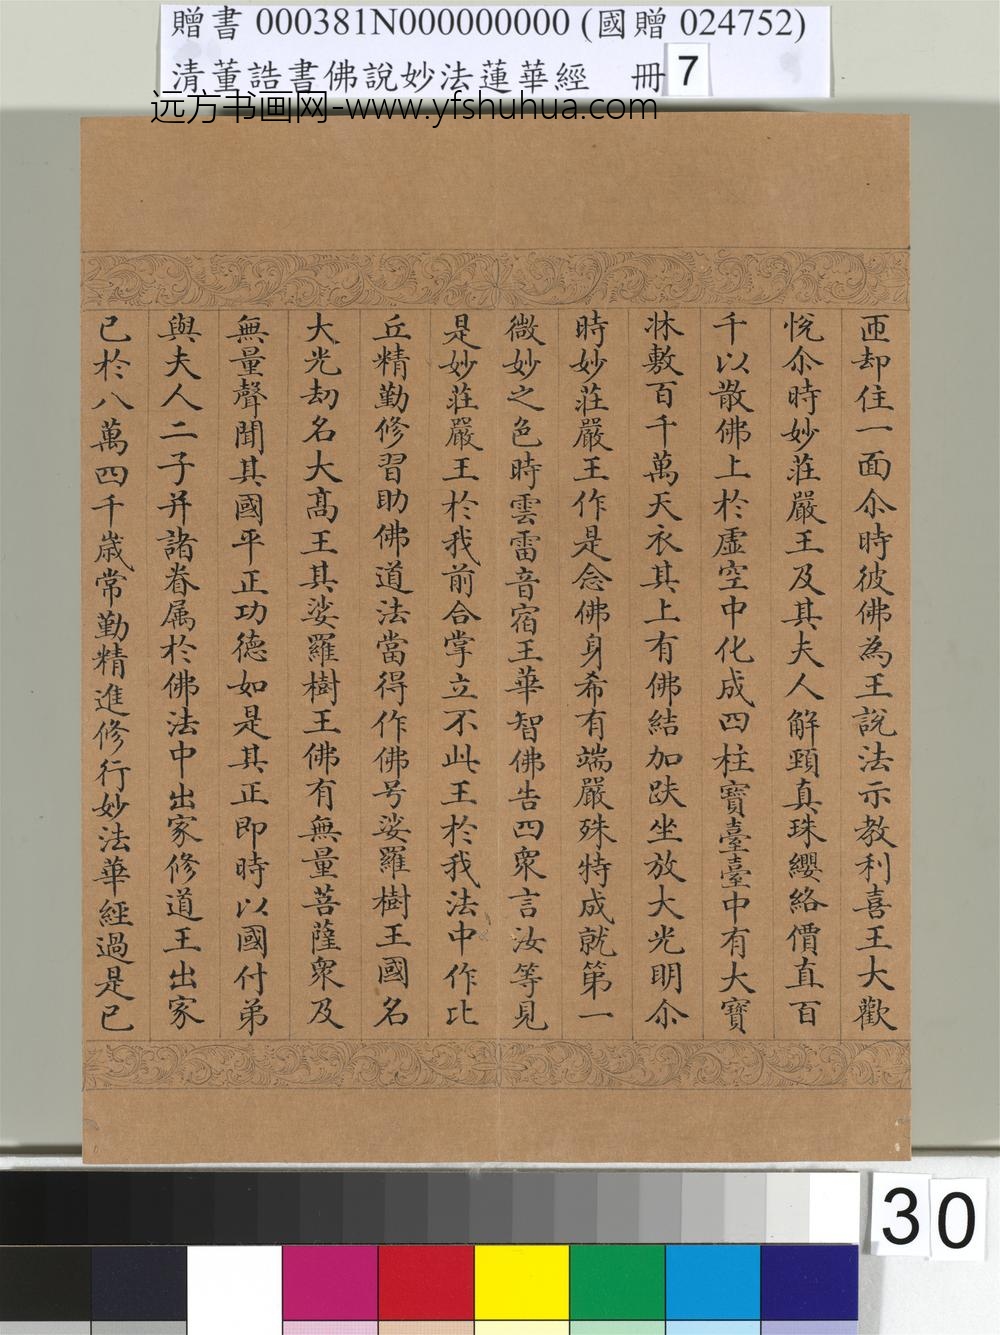 贈書 000381N000000000 (國贈 024752)
清董誥書佛說妙法蓮華經 冊 7
远方书画网-www.yfshuhua.com
匝却住一面尒時彼佛為王說法示教利喜王大歡
悅尒時妙莊嚴王及其夫人解頸真珠纓絡價直百
千以散佛上於虛空中化成四柱寶臺臺中有大寶
牀敷百千萬天衣其上有佛結加趺坐放大光明尒
時妙莊嚴王作是念佛身希有端嚴殊特成就第一
微妙之色時雲雷音宿王華智佛告四衆言汝等見
是妙莊嚴王於我前合掌立不此王於我法中作比
丘精勤修習助佛道法當得作佛号娑羅樹王國名
大光劫名大髙王其娑羅樹王佛有無量菩薩衆及
無量聲聞其國平正功德如是其王即時以國付弟
與夫人二子并諸眷属於佛法中出家修道王出家
已於八萬四千歲常勤精進修行妙法華經過是已
30